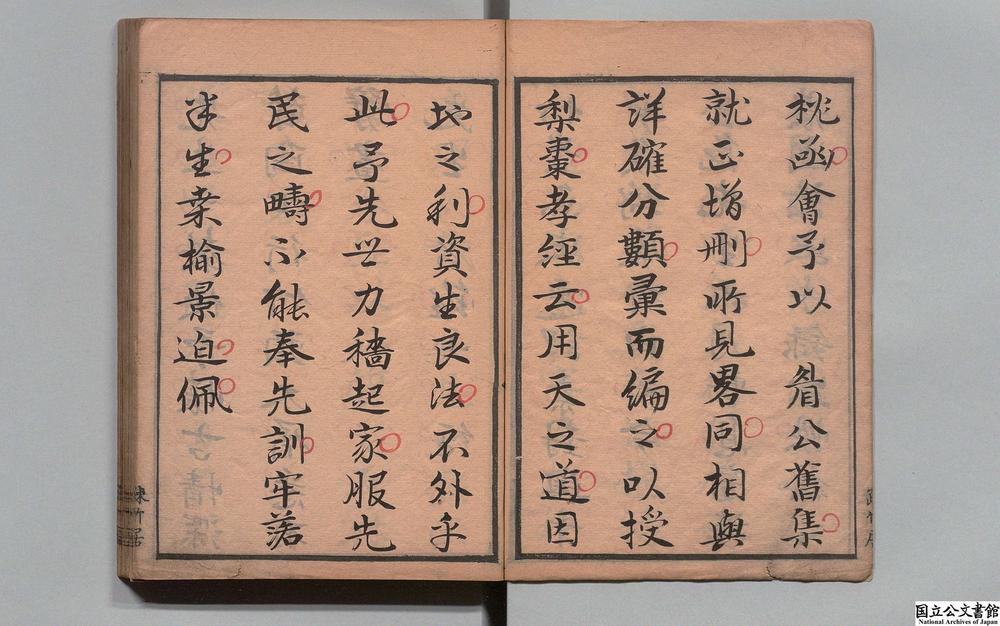 桃函會予以 眉公舊集
就正增刪所見畧同相與
詳確分顟彙而編之以授
梨棗孝經云用天之道因
地之利資生良法不外乎
此予先世力穡起家服先
民之疇不能奉先訓牢落
半生桑榆景迫佩
國立公文書館
National Archives of Japan